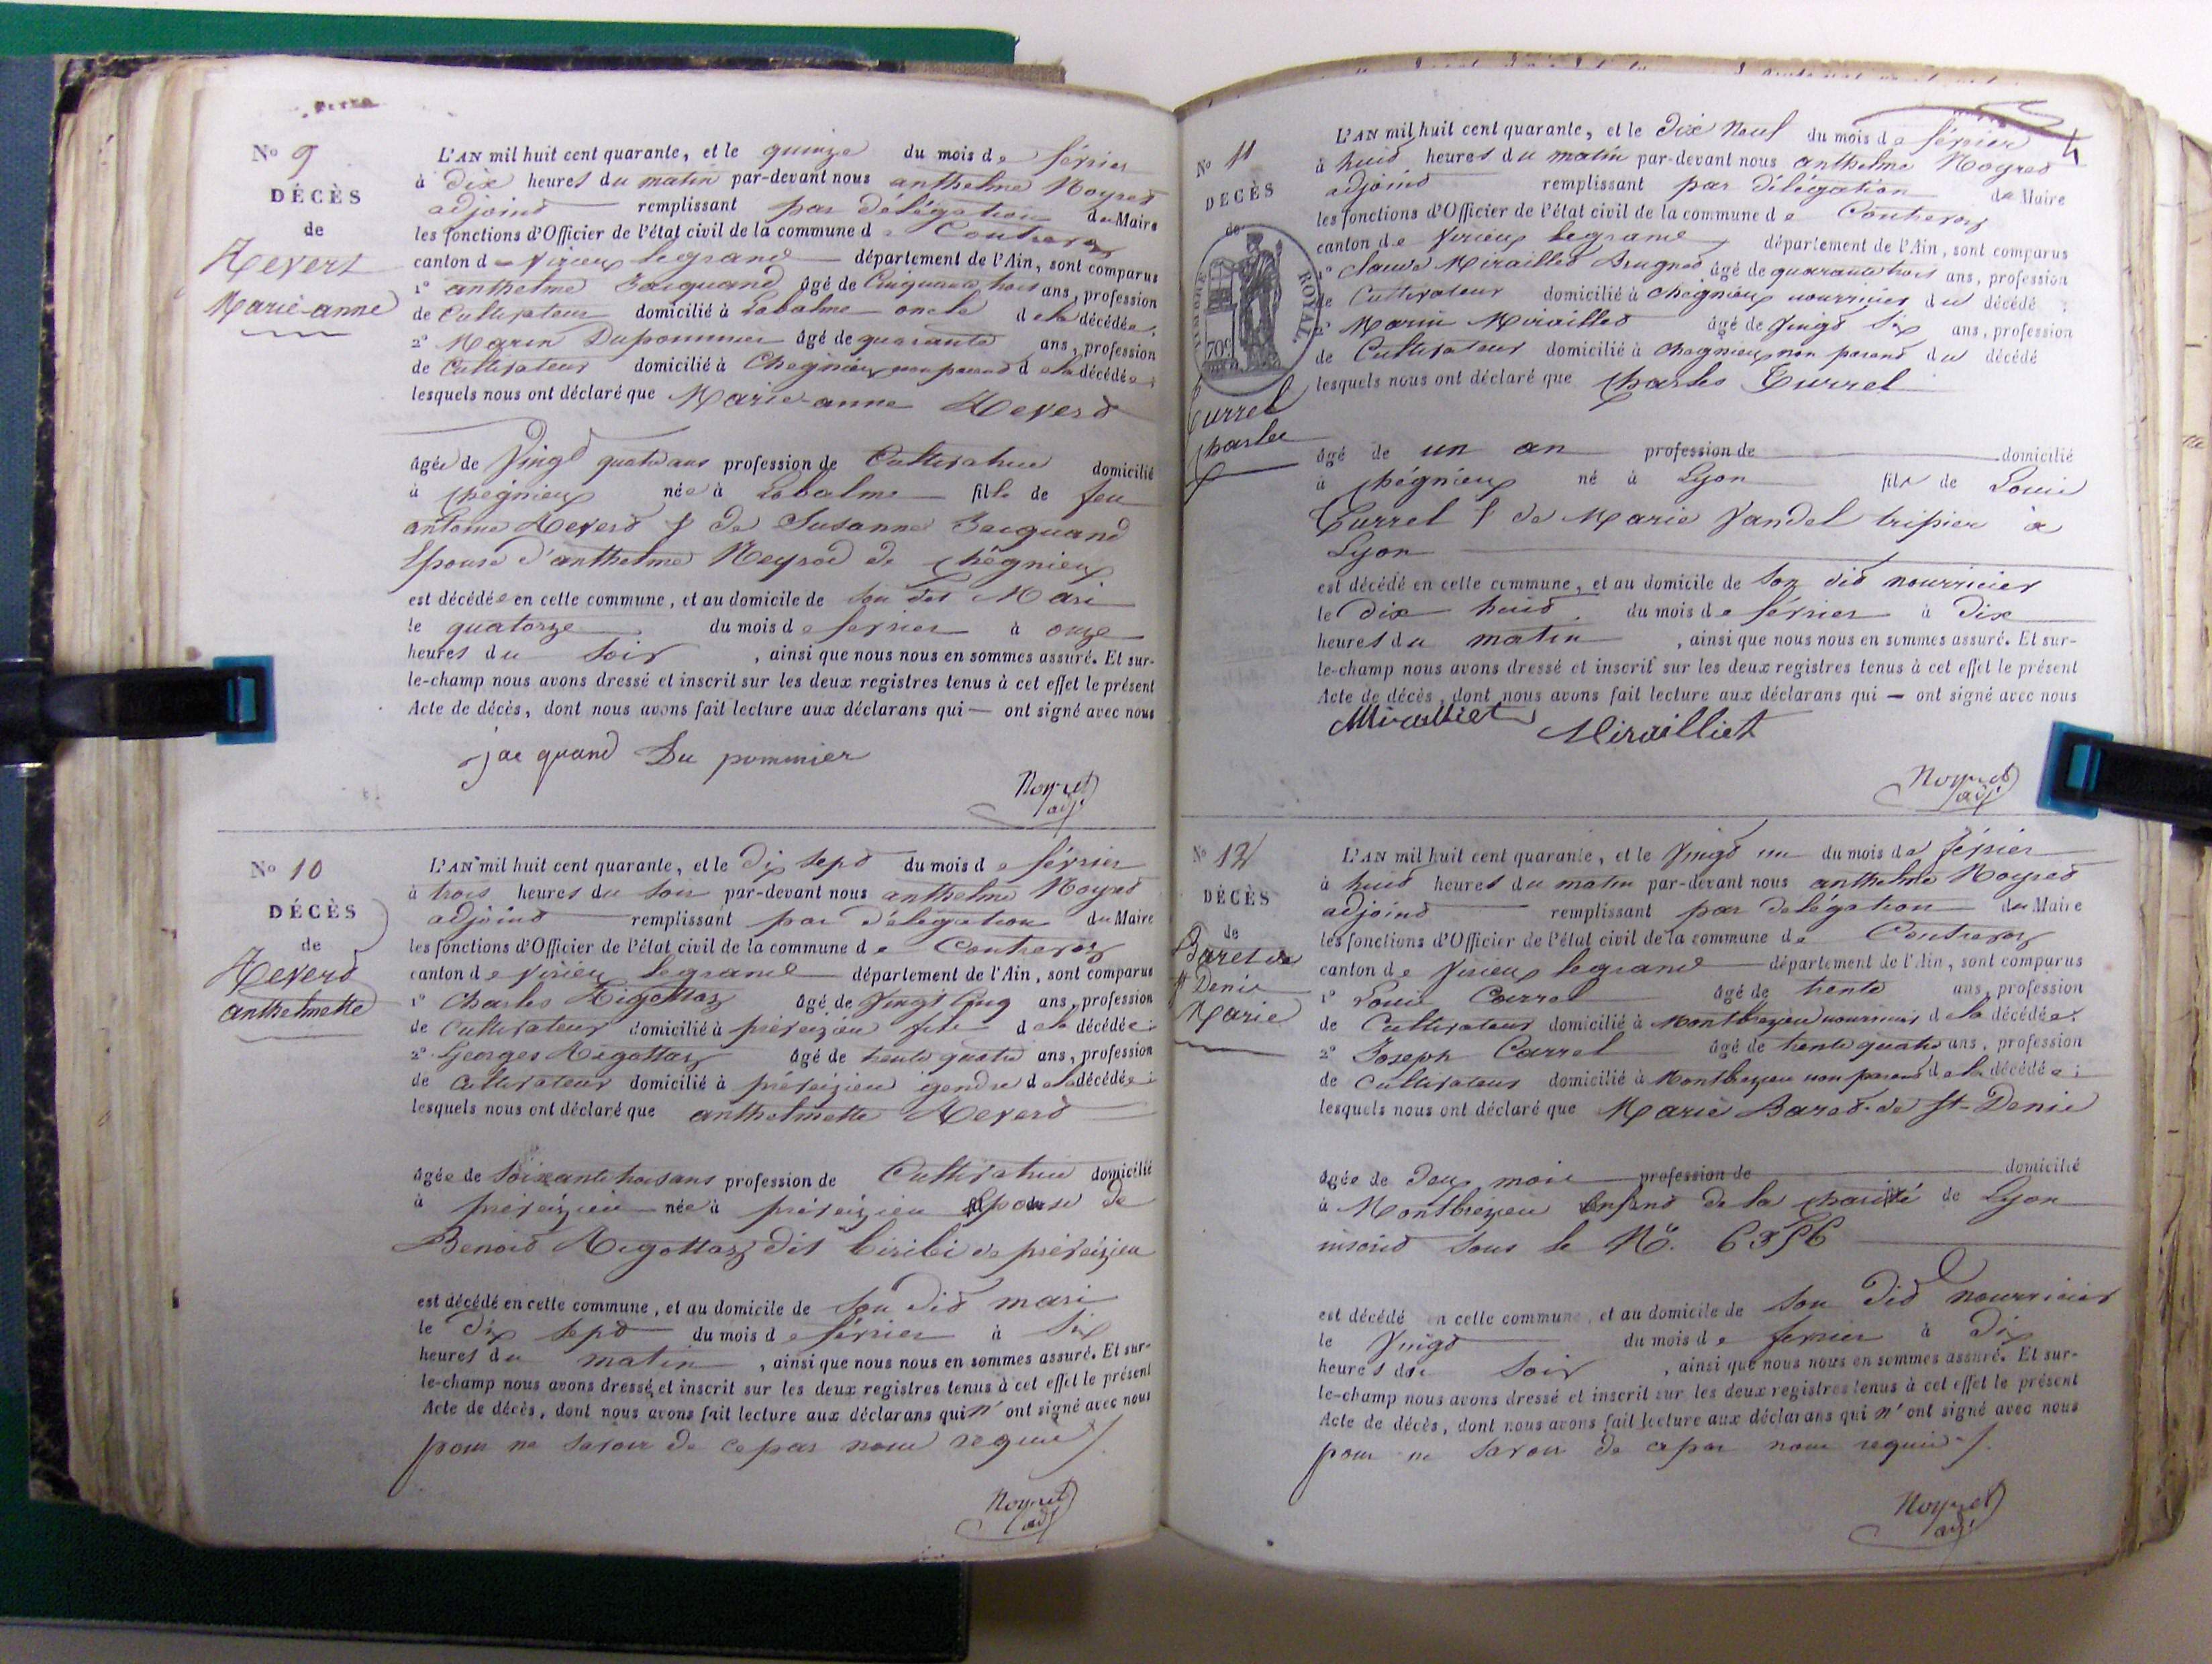 No 9
DÉCÈS
de
Revert
Marie-anne
L'AN mil huit cent quarante, et le quinze du mois de février
à dix heures du matin par-devant nous anthelme Noyret
adjoint remplissant par délégation du Maire
les fonctions d'Officier de l'état civil de la commune de Contrevoz
canton de Virieu legrand département de l'Ain, sont comparus
1° anthelme Jacquand âgé de Cinquante trois ans, profession
de Cultivateur domicilié à Labalme oncle de la décédée;
2° Marin Dupommier âgé de quarante ans, profession
de Cultivateur domicilié à Chegnieu non parent de la décédée;
lesquels nous ont déclaré que Marie-anne Revert
âgée de Vingt quatre ans profession de Cultivatrice domicilié
à Chégnieu née à Labalme fille de feu
antoine Revert & de Susanne Jacquand
Epouse d'anthelme Neyrod de Chégnieu
est décédée en cette commune, et au domicile de son dit Mari
le quatorze du mois de fevrier à onze
heures du soir, ainsi que nous nous en sommes assuré. Et sur-
le-champ nous avons dressé et inscrit sur les deux registres tenus à cet effet le présent
Acte de décès, dont nous avons fait lecture aux déclarans qui — ont signé avec nous
jacquand Du pommier
Noyret
adj
No 10
DÉCÈS
de
Revert
anthelmette
L'AN mil huit cent quarante, et le Dix sept du mois de février
à trois heures du soir par-devant nous anthelme Noyret
adjoint remplissant par délégation du Maire
les fonctions d'Officier de l'état civil de la commune de Contrevoz
canton de Virieu legrand département de l'Ain, sont comparus
1° Charles Rigottaz âgé de Vingt Cinq ans, profession
de Cultivateur domicilié à préveizieu fils de la décédée;
2° Georges Rigottaz âgé de trente quatre ans, profession
de Cultivateur domicilié à préveizieu gendre de la décédée;
lesquels nous ont déclaré que anthelmette Revert
âgée de soixante trois ans profession de Cultivatrice domicilié
à préveizieu née à préveizieu Epouse de
Benoit Rigottaz dit biribi de préveizieu
est décédé en cette commune, et au domicile de son dit mari
le Dix sept du mois de février à Six
heures du matin, ainsi que nous nous en sommes assuré. Et sur-
le-champ nous avons dressé et inscrit sur les deux registres tenus à cet effet le présent
Acte de décès, dont nous avons fait lecture aux déclarans qui n' ont signé avec nous
pour ne savoir de ce par nous requis
Noyret
adj
No 11
DECÈS
de
TIMBRE ROYAL
70c
Currel
Charles
L'AN mil huit cent quarante, et le Dix Neuf du mois de février
à huit heures du matin par-devant nous anthelme Noyret
adjoint remplissant par délégation du Maire
les fonctions d'Officier de l'état civil de la commune de Contrevoz
canton de Virieu legrand département de l'Ain, sont comparus
1° Claude Miraillet Brugnet âgé de quarante trois ans, profession
de Cultivateur domicilié à Chégnieu nourricier du décédé;
2° Marin Miraillet âgé de Vingt Six ans, profession
de Cultivateur domicilié à Chegnieu non parent du décédé
lesquels nous ont déclaré que Charles Currel
âgé de un an profession de domicilié
à Chégnieu né à Lyon fils de Louis
Currel & de Marie Vandel tripier à
Lyon
est décédé en cette commune, et au domicile de son dit nourricier
le Dix huit du mois de février à Dix
heures du matin, ainsi que nous nous en sommes assuré. Et sur-
le-champ nous avons dressé et inscrit sur les deux registres tenus à cet effet le présent
Acte de décès, dont nous avons fait lecture aux déclarans qui — ont signé avec nous
Miralliet Mirailliet
Noyret
adj
No 12
DÉCÈS
de
Baret de
St Denis
Marie
L'AN mil huit cent quarante, et le Vingt un du mois de février
à huit heures du matin par-devant nous anthelme Noyret
adjoint remplissant par délégation du Maire
les fonctions d'Officier de l'état civil de la commune de Contrevoz
canton de Virieu legrand département de l'Ain, sont comparus
1° Louis Carrel âgé de trente ans, profession
de Cultivateur domicilié à Montbreyzieu nourricier de la décédée;
2° Joseph Carrel âgé de trente quatre ans, profession
de Cultivateur domicilié à Montbreyzieu non parent de la décédée;
lesquels nous ont déclaré que Marie Baret-de St-Denis
âgée de Deux mois profession de domicilié
à Montbreyzieu Enfant de la charité de Lyon
inscrit sous le No. 6356
est décédé en cette commune, et au domicile de son dit nourricier
le Vingt du mois de fevrier à Dix
heures du soir, ainsi que nous nous en sommes assuré. Et sur-
le-champ nous avons dressé et inscrit sur les deux registres tenus à cet effet le présent
Acte de décès, dont nous avons fait lecture aux déclarans qui n' ont signé avec nous
pour ne savoir de ce par nous requis
Noyret
adj